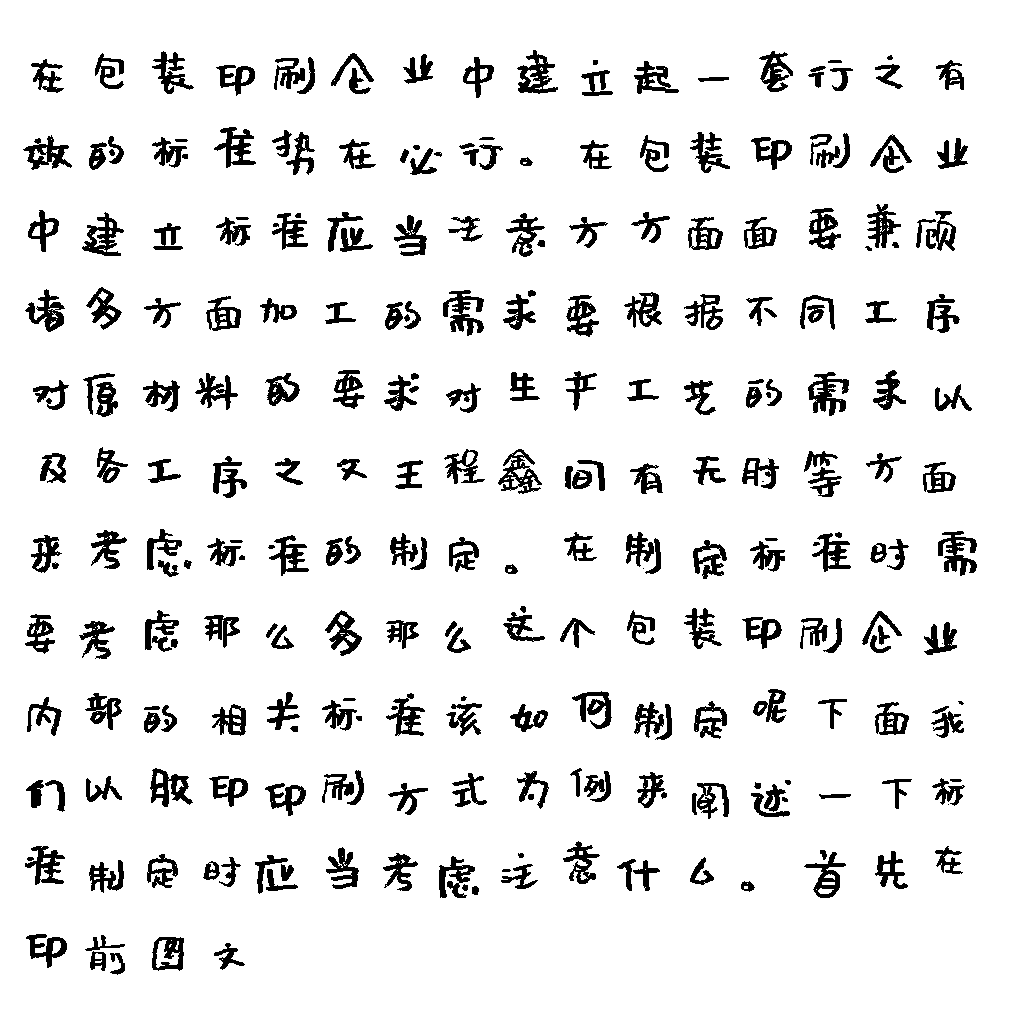 在包装印刷企业中建立起一套行之有
效的标准势在必行。在包装印刷企业
中建立标准应当注意方方面面要兼顾
诸多方面加工的需求要根据不同工序
对原材料的要求对生产工艺的需求以
及各工序之文王程鑫间有无时等方面
来考虑标准的制定。在制定标准时需
要考虑那么多那么这个包装印刷企业
内部的相关标准该如何制定呢下面我
们以胶印印刷方式为例来阐述一下标
准制定时应当考虑注意什么。首先在
印前图文